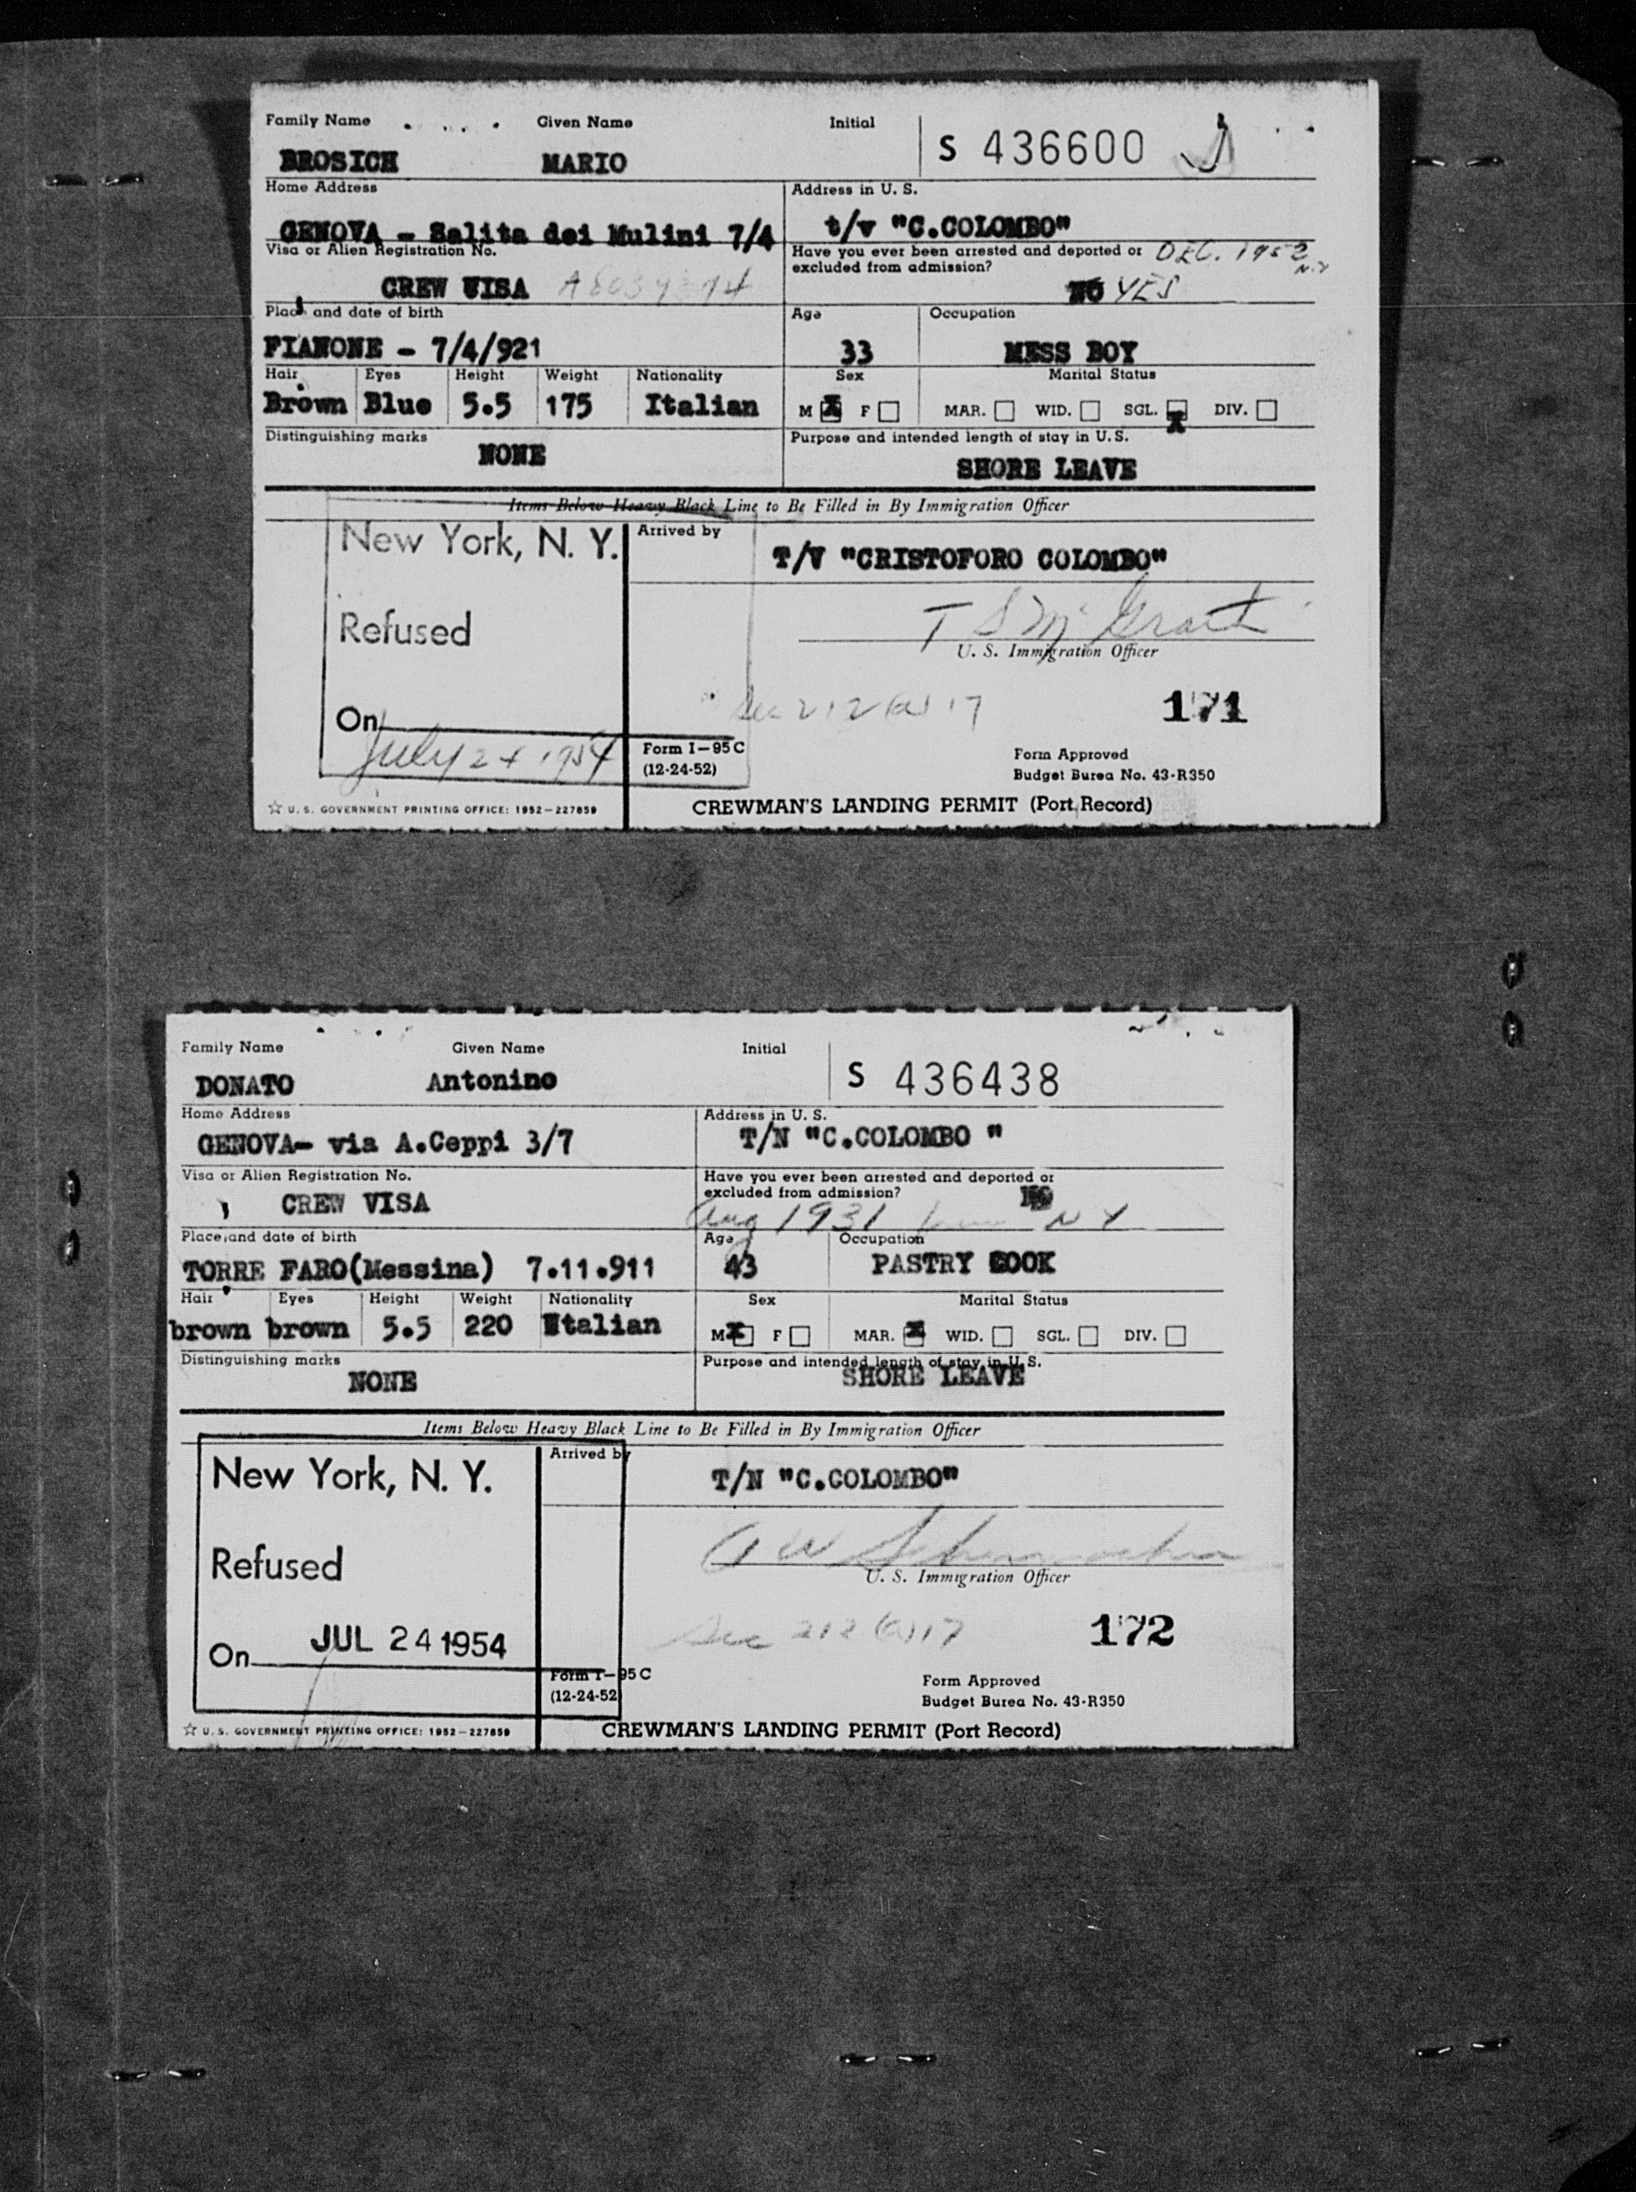 Family Name Given Name Initial
S 436600
BROSICH MARIO
Home Address Address in U. S.
GENOVA - Salita dei Mulini 7/4 t/v "C.COLOMBO"
Visa or Alien Registration No. Have you ever been arrested and deported or DEC. 1952
excluded from admission? N.Y
CREW VISA NO YES
Place and date of birth Age Occupation
FIANONE - 7/4/921 33 MESS BOY
Hair Eyes Height Weight Nationality Sex Marital Status
Brown Blue 5.5 175 Italian M X F MAR. WID. SGL. X DIV.
Distinguishing marks Purpose and intended length of stay in U. S.
NONE SHORE LEAVE
Items Below Heavy Black Line to Be Filled in By Immigration Officer
New York, N. Y. Arrived by
T/V "CRISTOFORO COLOMBO"
Refused T S McGrath
U. S. Immigration Officer
Sec 212(a)17 171
On July 24 1954
Form I-95C Form Approved
(12-24-52) Budget Burea No. 43-R350
☆ U. S. GOVERNMENT PRINTING OFFICE: 1952-227859 CREWMAN'S LANDING PERMIT (Port Record)
Family Name Given Name Initial
S 436438
DONATO Antonino
Home Address Address in U. S.
GENOVA- via A.Ceppi 3/7 T/N "C.COLOMBO "
Visa or Alien Registration No. Have you ever been arrested and deported or
excluded from admission? NO
CREW VISA Aug 1931 NY
Place and date of birth Age Occupation
TORRE FARO(Messina) 7.11.911 43 PASTRY COOK
Hair Eyes Height Weight Nationality Sex Marital Status
brown brown 5.5 220 Italian M X F MAR. X WID. SGL. DIV.
Distinguishing marks Purpose and intended length of stay in U. S.
NONE SHORE LEAVE
Items Below Heavy Black Line to Be Filled in By Immigration Officer
New York, N. Y. Arrived by
T/N "C.COLOMBO"
Refused A W
U. S. Immigration Officer
Sec 212(a)17 172
On JUL 24 1954
Form I-95C Form Approved
(12-24-52) Budget Burea No. 43-R350
☆ U. S. GOVERNMENT PRINTING OFFICE: 1952-227859 CREWMAN'S LANDING PERMIT (Port Record)